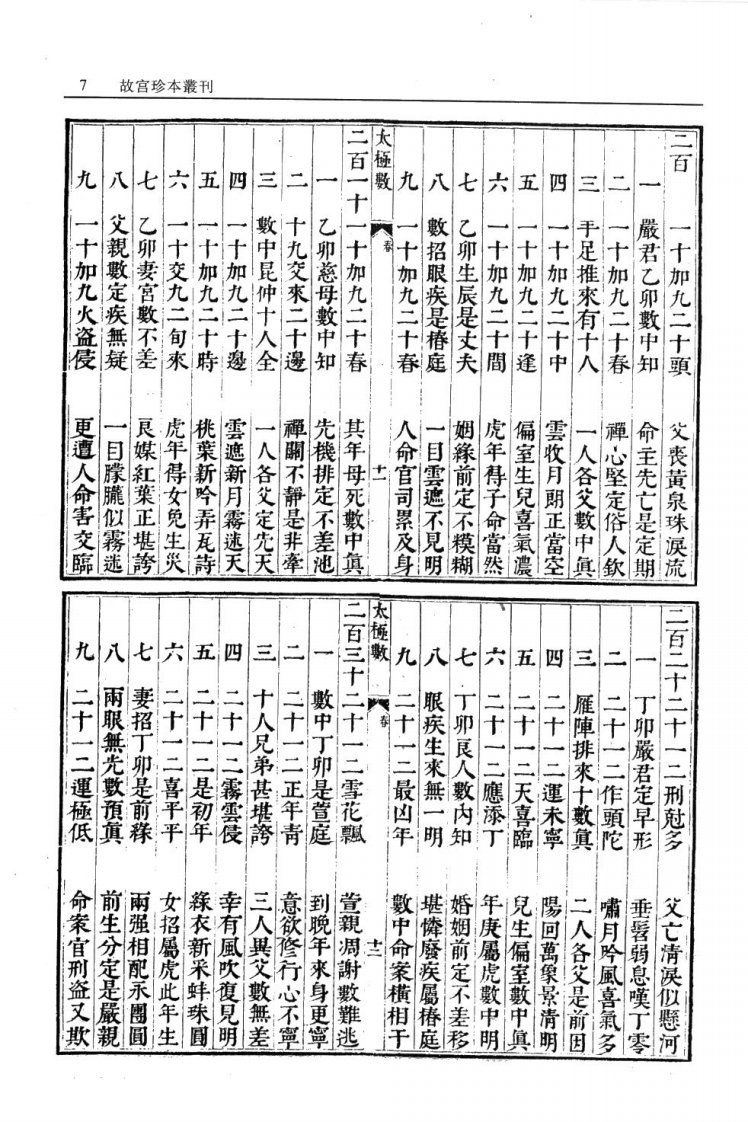 7 故宮珍本叢刊
二百 一十加九二十頭 父喪黃泉珠淚流
一 嚴君乙卯數中知 命主先亡是定期
二 一十加九二十春 禪心堅定俗人欽
三 手足推來有十八 一人各父數中真
四 一十加九二十中 雲收月朗正當空
五 一十加九二十逢 偏室生兒喜氣濃
六 一十加九二十間 虎年得子命當然
七 乙卯生辰是丈夫 姻緣前定不模糊
八 數招眼疾是椿庭 一目雲遮不見明
九 一十加九二十春 人命官司累及身
太極數 卷 十一
二百一十 一十加九二十春 其年母死數中真
一 乙卯慈母數中知 先機排定不差池
二 十九交來二十邊 禪關不靜是非牽
三 數中昆仲十人全 一人各父定先天
四 一十加九二十邊 雲遮新月霧迷天
五 一十加九二十時 桃葉新吟弄瓦詩
六 一十交九二旬來 虎年得女免生災
七 乙卯妻宮數不差 良媒紅葉正堪誇
八 父親數定疾無疑 一目朦朧似霧迷
九 一十加九火盜侵 更遭人命害交臨
二百二十 二十一二刑尅多 父亡清淚似懸河
一 丁卯嚴君定早形 垂髫弱息嘆丁零
二 二十一二作頭陀 嘯月吟風喜氣多
三 雁陣排來十數真 二人各父是前因
四 二十一二運未寧 陽回萬象景清明
五 二十一二天喜臨 兒生偏室數中真
六 二十一二應添丁 年庚屬虎數中明
七 丁卯良人數內知 婚姻前定不差移
八 眼疾生來無一明 堪憐廢疾屬椿庭
九 二十一二最凶年 數中命案橫相干
太極數 卷 十二
二百三十 二十一二雪花飄 萱親凋謝數難逃
一 數中丁卯是萱庭 到晚年來身更寧
二 二十一二正年青 意欲修行心不寧
三 十人兄弟甚堪誇 三人異父數無差
四 二十一二霧雲侵 幸有風吹復見明
五 二十一二是初年 綠衣新采蚌珠圓
六 二十一二喜平平 女招屬虎此年生
七 妻招丁卯是前緣 兩强相配永團圓
八 兩眼無光數預真 前生分定是嚴親
九 二十一二運極低 命案官刑盜又欺